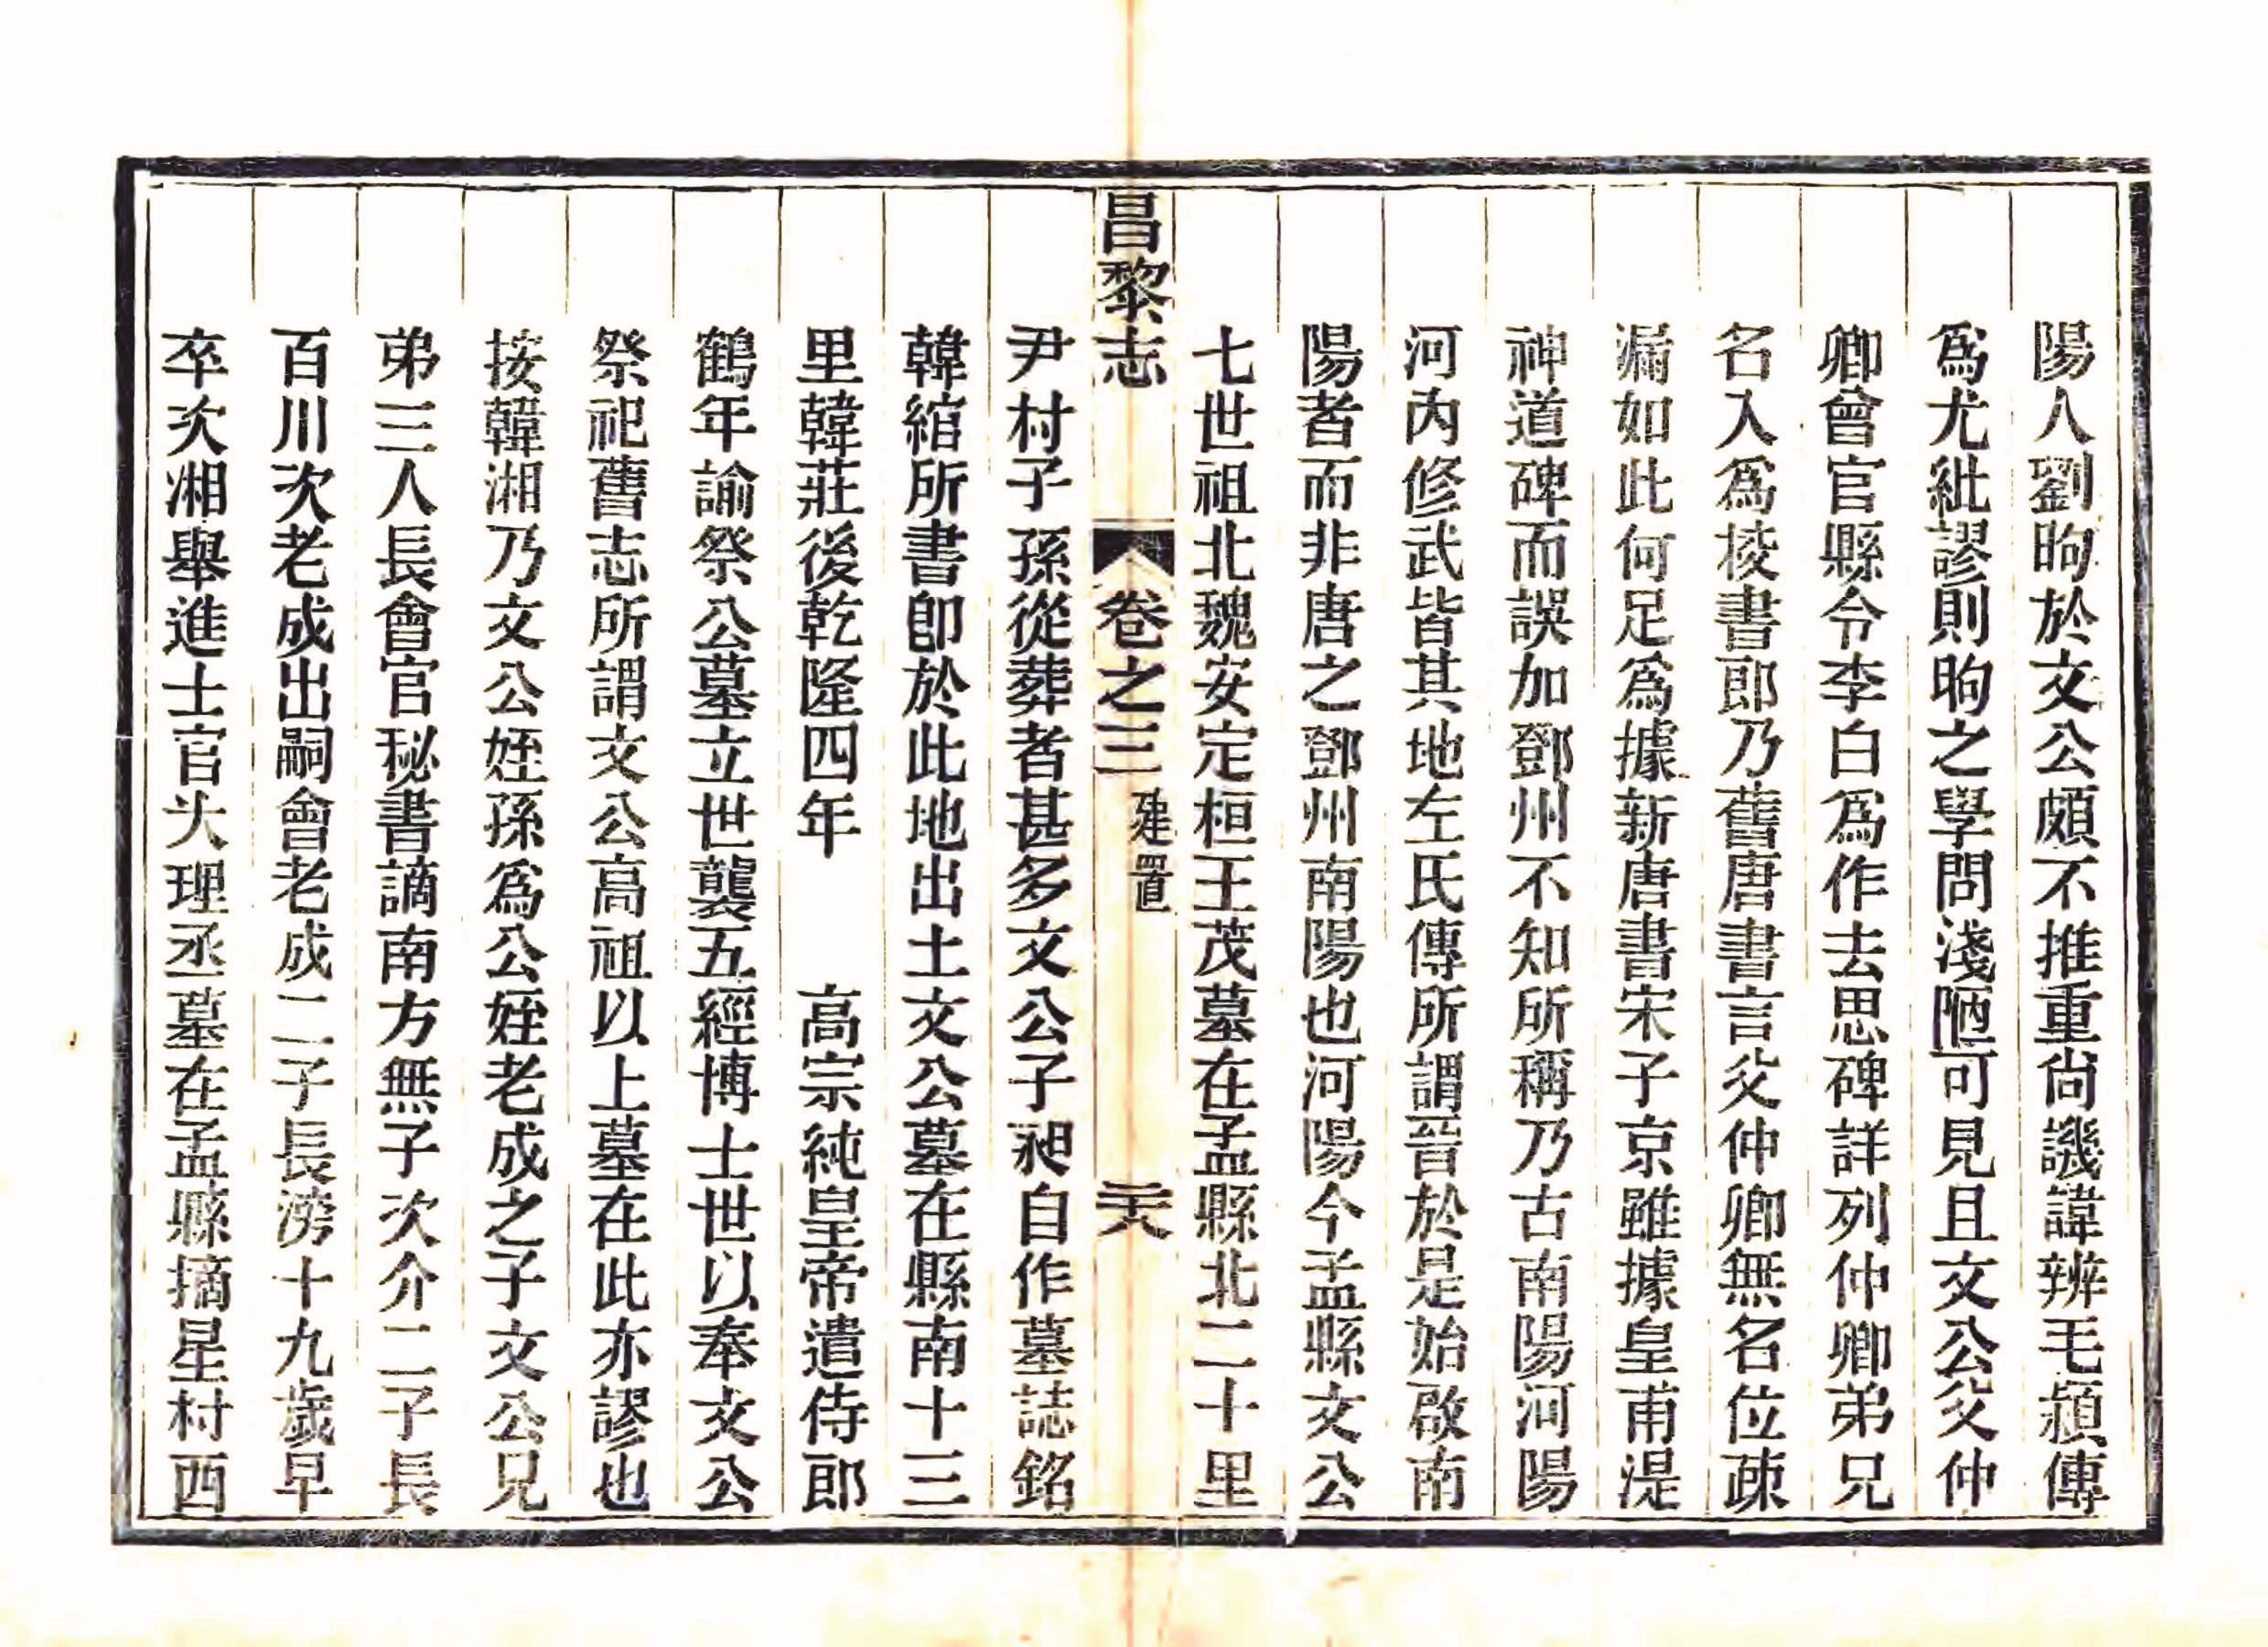 陽人劉昫於文公頗不推重尙譏諱辨毛穎傳
爲尤紕謬則昫之學問淺陋可見且文公父仲
卿曾官縣令李白爲作去思碑詳列仲卿弟兄
名入爲挍書郎乃舊唐書言父仲卿無名位疎
漏如此何足爲據新唐書宋子京雖據皇甫湜
神道碑而誤加鄧州不知所稱乃古南陽河陽
河內修武皆其地左氏傳所謂晉於是始啟南
陽者而非唐之鄧州南陽也河陽今孟縣文公
七世祖北魏安定桓王茂墓在孟縣北二十里
昌黎志 卷之三 建置 二十八
尹村子孫從葬者甚多文公子昶自作墓誌銘
韓綰所書卽於此地出土文公墓在縣南十三
里韓莊後乾隆四年 高宗純皇帝遣侍郎
鶴年諭祭公墓立世襲五經博士世以奉文公
祭祀舊志所謂文公高祖以上墓在此亦謬也
按韓湘乃文公姪孫爲公姪老成之子文公兄
弟三人長會官秘書謫南方無子次介二子長
百川次老成出嗣會老成二子長滂十九歲早
卒次湘舉進士官大理丞墓在孟縣摘星村西